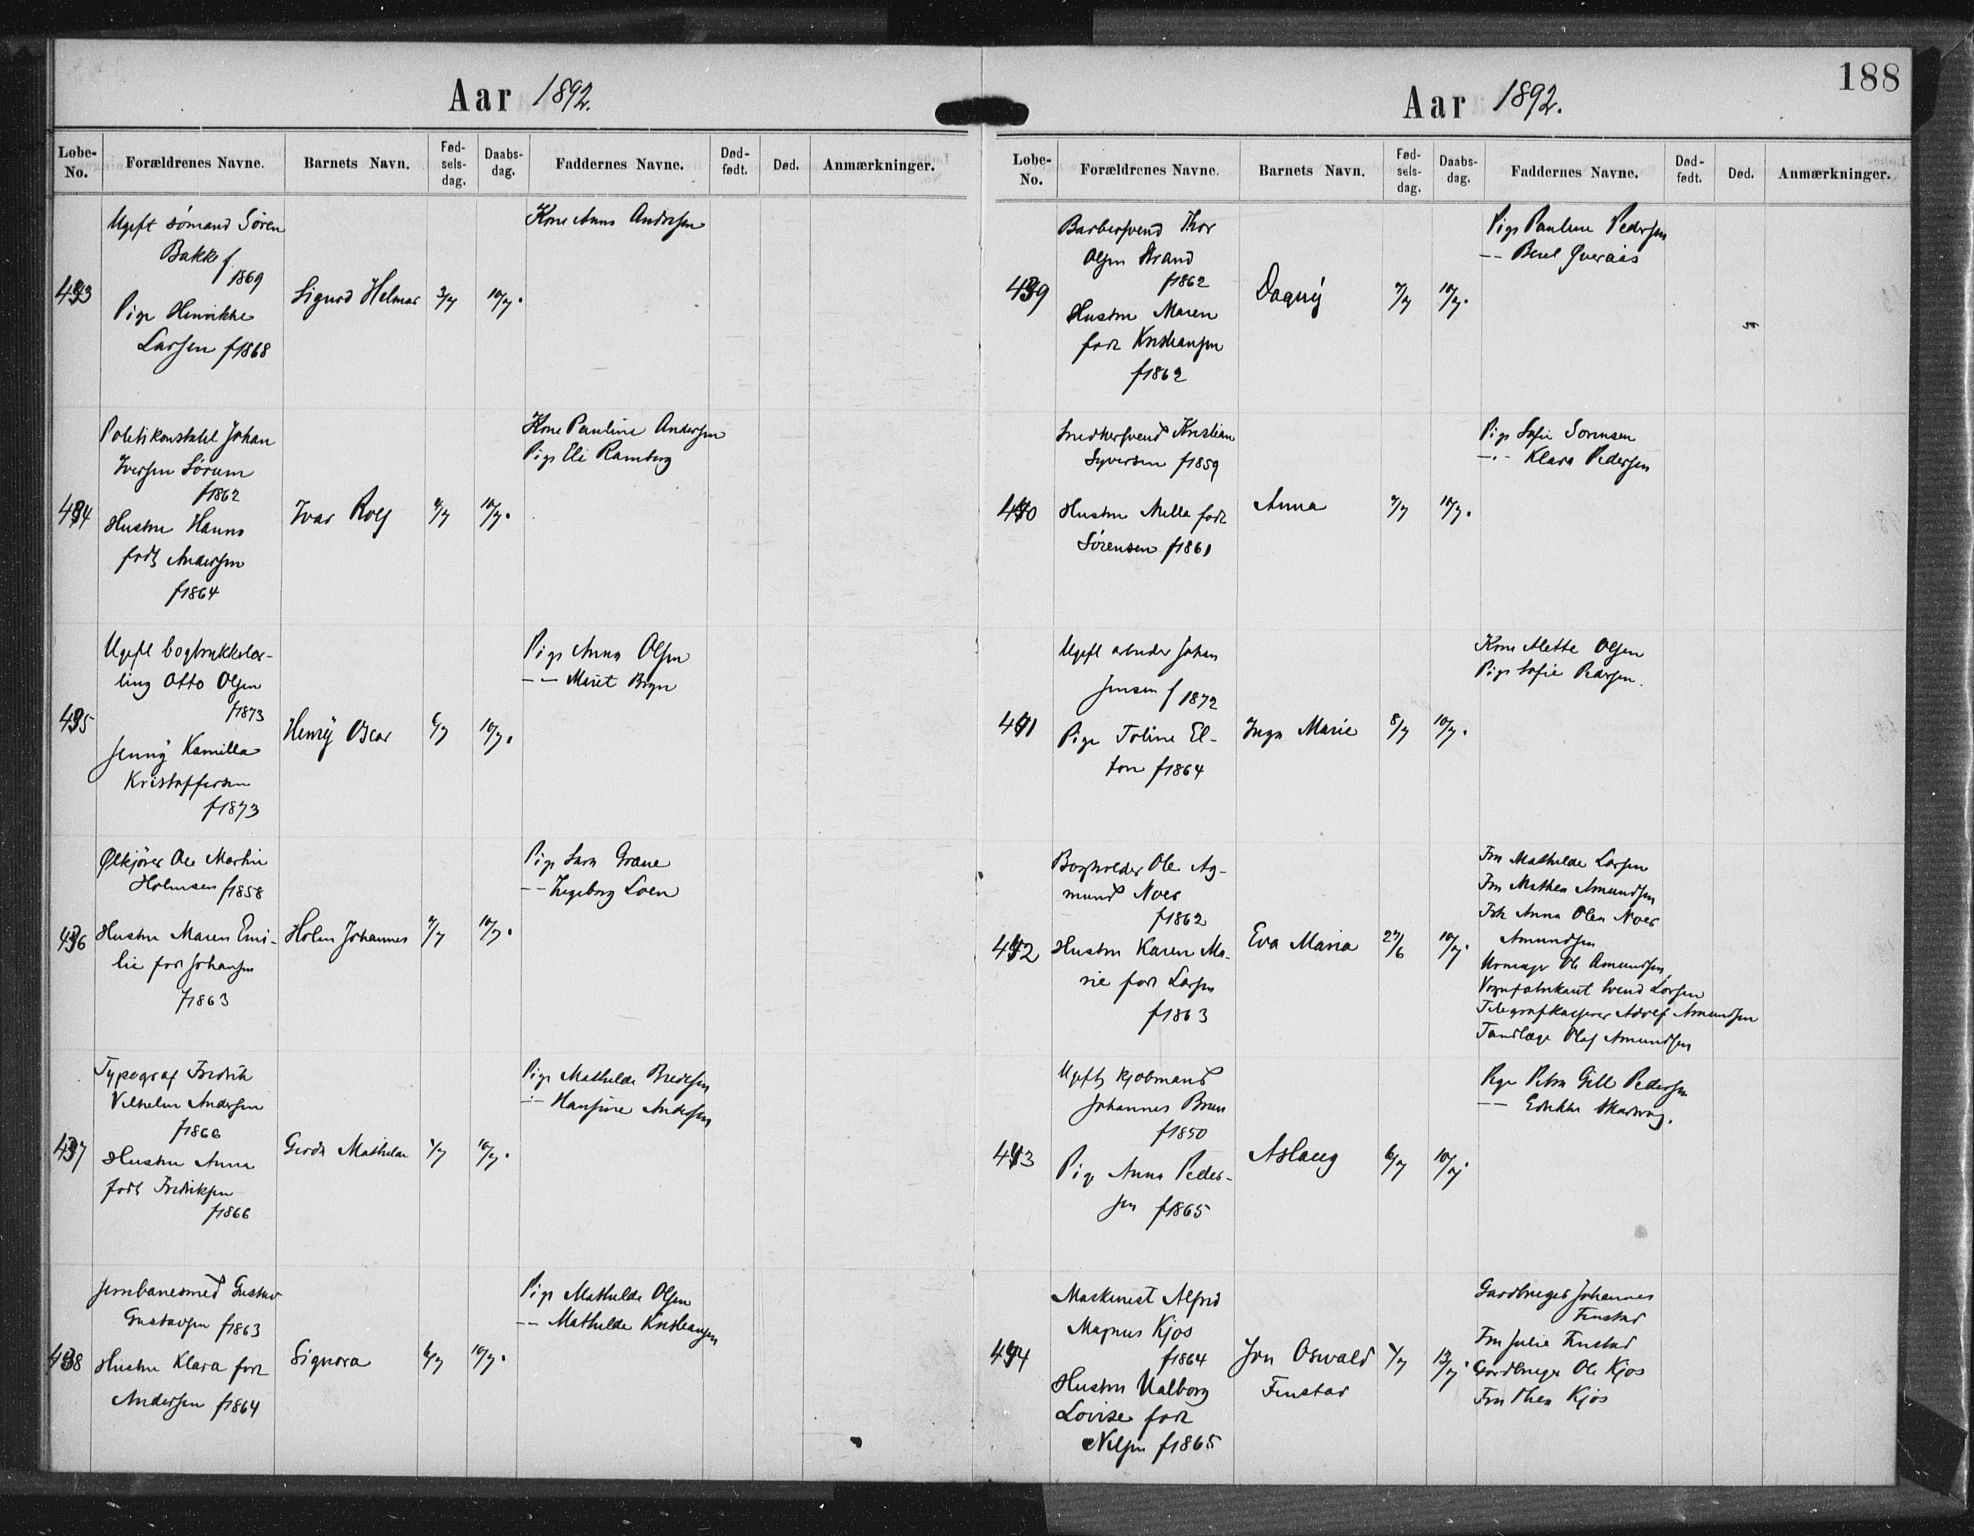 Aar 1892.
Løbe-No.
Forældrenes Navne.
Barnets Navn.
Fødselsdag.
Daabsdag.
Faddernes Navne.
Dødfødt.
Død.
Anmærkninger.
Ugift sömand Sören
Bakke f
1869
Pige Henrikke
Larsen f1868
Sigurd Helmar
10/7.
Kone Anna Andersen
434
Politikonstabel Johan
Iversen Sörum
f1862
Hustru Hanna
født Andersen
f1864
Ivar Rolf
10/7.
Kone Pauline Andersen
Pige Eli Ramberg
435
Ugift bogtrykkerlær-
ling Otto Olsen
f1873
Jenny Kamilla
Kristoffersen
f1873
Henry Oscar
6/7
10/7.
Pige Anna Olsen
-- Marit Bryn
436
Ølkjörer Ole Martin
Holmsen f1858
Hustru Maren Emi-
lie født Johansen
f1863
Holm Johannes
10/7.
Pige Sara Grane
-- Ingeborg Loen
437
Typograf Fredrik
Vilhelm Andersen
f1866
Hustru Anna
født Fredriksen
f1866
Gerda Mathilde
10/7.
Pige Mathilde Bredesen
-- Hansine Andersen
438
Jernbanesmed Gustav
Gustavsen f1863
Hustru Klara født
Andersen f1864
Signora
6/7
10/7.
Pige Mathilde Olsen
-- Mathilde Kristiansen
188
Aar 1892.
Løbe-No.
Forældrenes Navne.
Barnets Navn.
Fødselsdag.
Daabsdag.
Faddernes Navne.
Dødfødt.
Død.
Anmærkninger.
439
Barbersvend Thor
Olsen Strand
f1862
Hustru Maren
født Kristiansen
f1862
Dagny
10/7.
Pige Pauline Pedersen
-- Berit
440
Snedkersvend Kristian
Syversen f1859
Hustru Mella født
Sörensen f1861
Anna
10/7.
Pige Sofie Sorensen
-- Klara Pedersen
441
Ugift arbeider Johan
Jensen f 1872
Pige Toline El-
ton f1864
Inga Marie
8/7
10/7.
Kone Alette Olsen
Pige Sofie Pedersen.
442
Bogholder Ole Ag-
mund Noer
f1862
Hustru Karen Ma-
rie født Larsen
f1863
Eva Maria
27/6
10/7.
Fru Mathilde Larsen
Fru Mathea Amundsen
Frk Anna Olea Noer
Amundsen
Urmager Ole Amundsen
Vognfabrikant Svend Larsen
Telegrafkasserer Adolf Amundsen
Tandlæge Olaf Amundsen
443
Ugift kjøbmand
Johannes Bruu
f1850
Pige Anna Peder-
sen f1865
Aslaug
6/7
10/7.
Pige Petra Gill Pedersen
--
Maskinist Alfred
Magnus Kjos
f1864
Hustru Valborg
Lovise født
Nilsen f1865
Jon Oswald
Finstad
13/7.
Gardbruger Johannes
Finstad
Fru Julie Finstad
Gardbruger Ole Kjos
Fru Thea Kjos